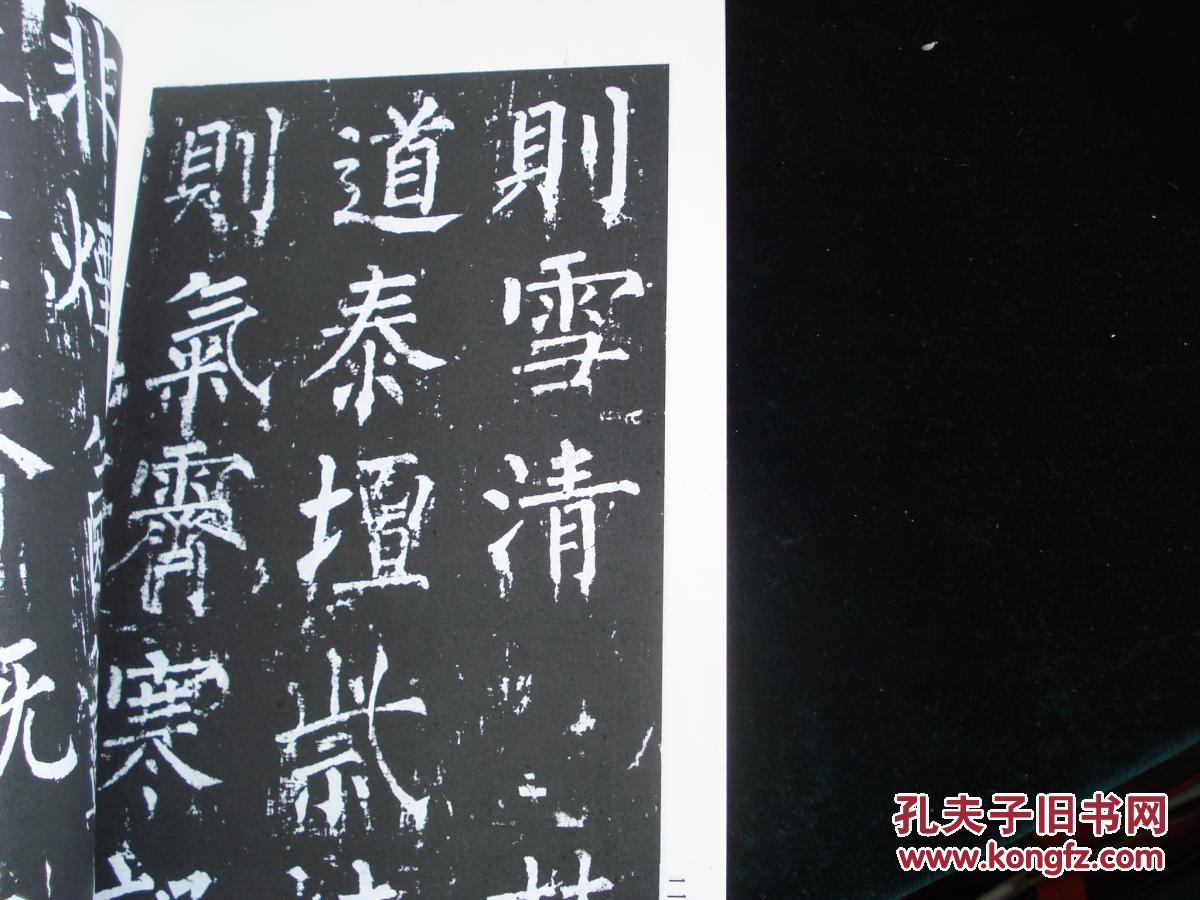 則雪清
道泰壇祡
則氣霽寒
非煙
既
孔夫子旧书网
www.kongfz.com